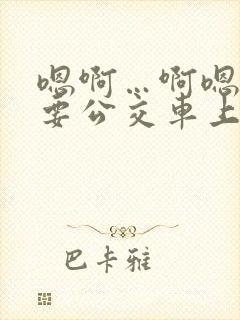 嗯啊…啊嗯
要公交车上
巴卡雅